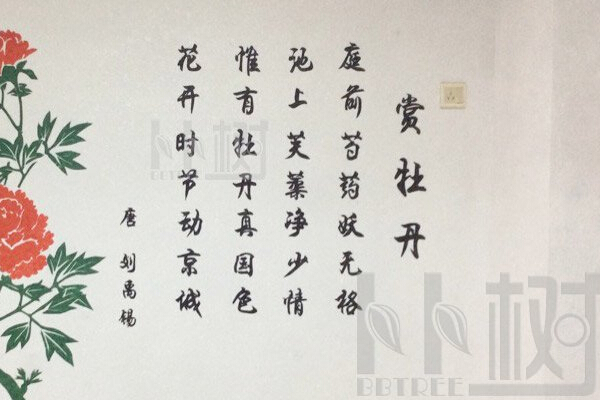 赏牡丹
庭前芍药妖无格
池上芙蕖净少情
惟有牡丹真国色
花开时节动京城
唐 刘禹锡
小树
BBTREE
小树
BBTREE